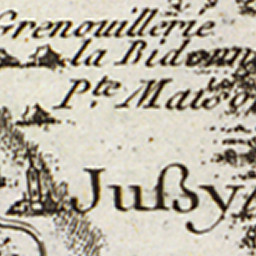 Grenouillerie
la Bidonn
P.te Maiso
Jußy